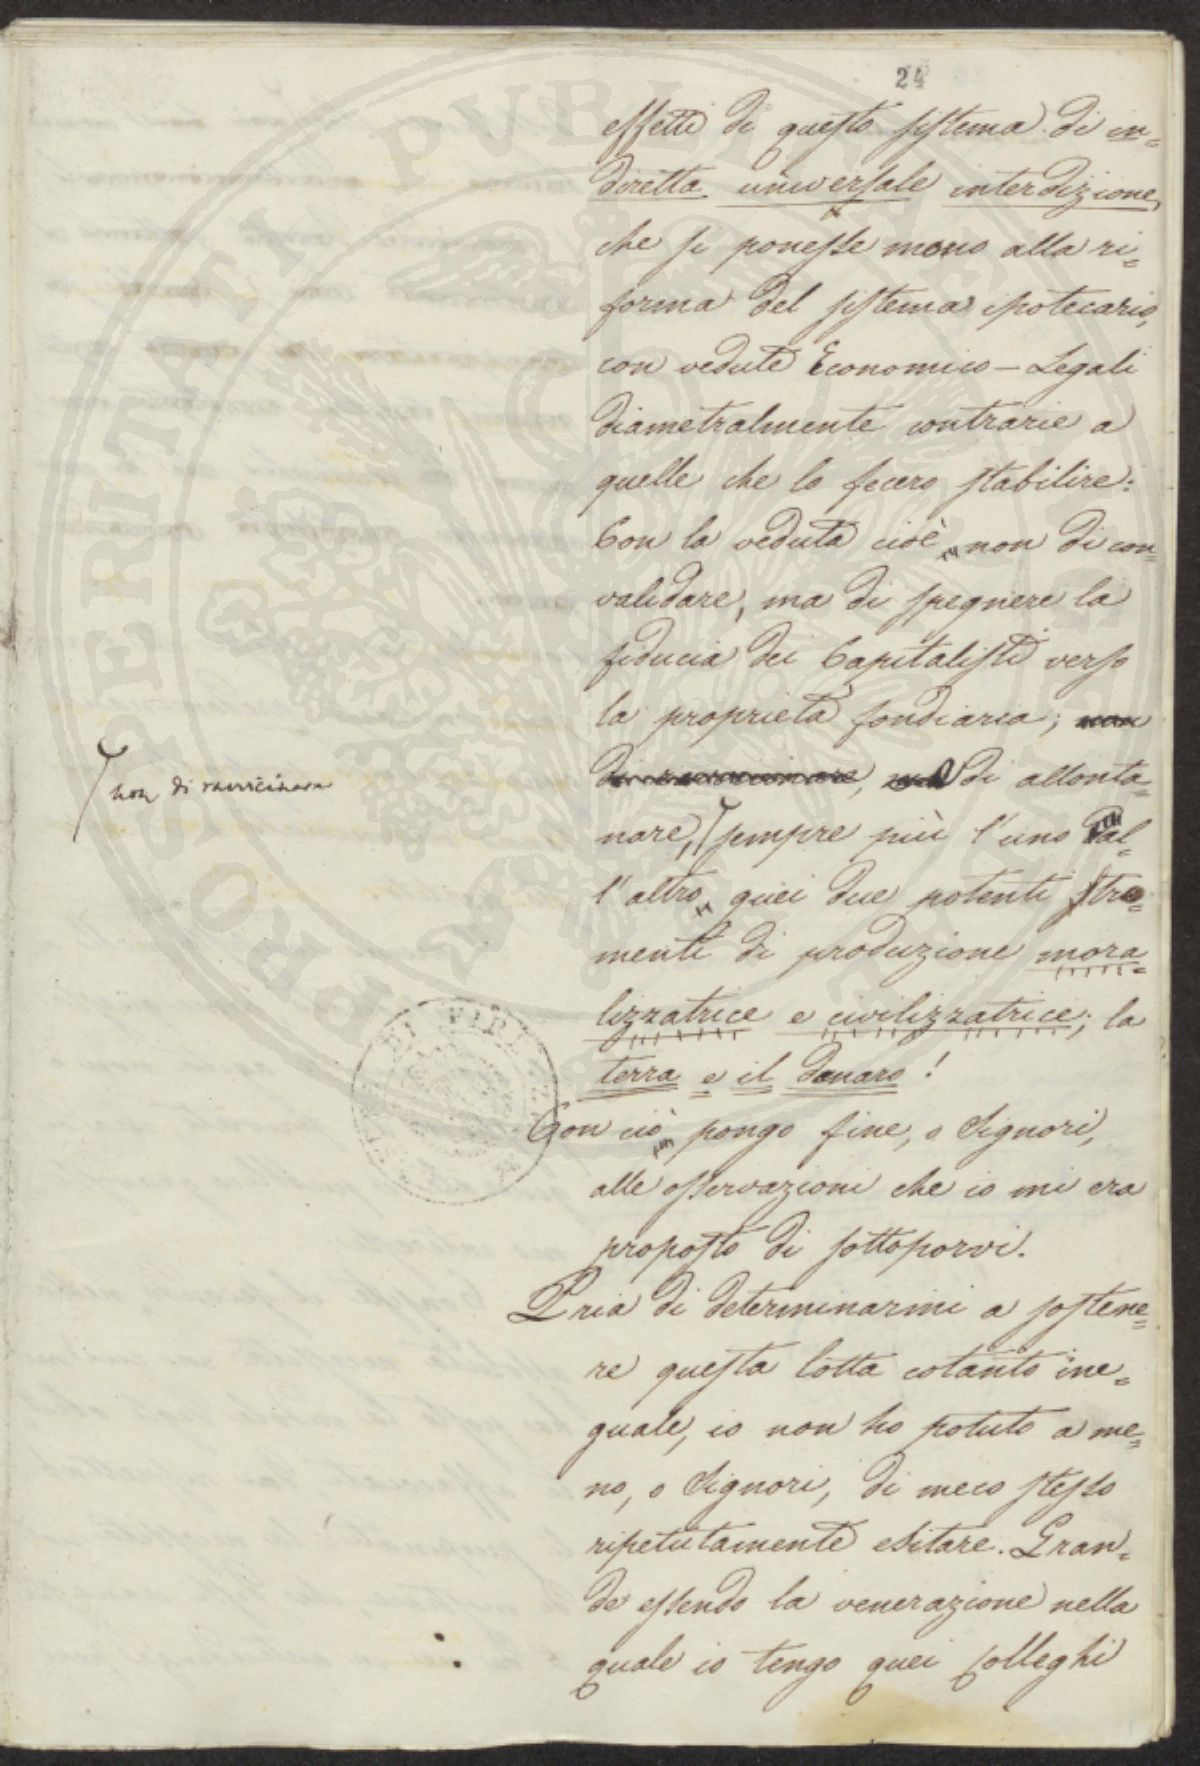 24
effetti di questo sistema di in=
diretta universale interdizione,
che si ponesse mano alla ri=
forma del sistema ipotecario,
con vedute Economico-Legali
diametralmente contrarie a
quelle che lo fecero stabilire:
Con la veduta cioè, non di con=
validare, ma di spegnere la
fiducia dei Capitalisti verso
la proprietà fondiaria; non
di ravvicinare, ma di allonta=
non di ravvicinare
nare, sempre più l'uno dal=
l'altro, quei due potenti stro=
menti di produzione mora=
lizzatrice e civilizzatrice; la
terra e il danaro!
Con ciò, pongo fine, o Signori,
alle osservazioni che io mi era
proposto di sottoporvi.
Pria di determinarmi a sostene=
re questa lotta cotanto ine=
guale, io non ho potuto a me=
no, o Signori, di meco stesso
ripetutamente esitare. Gran=
de essendo la venerazione nella
quale io tengo quei Colleghi
PROSPERITATI PVBLICAE